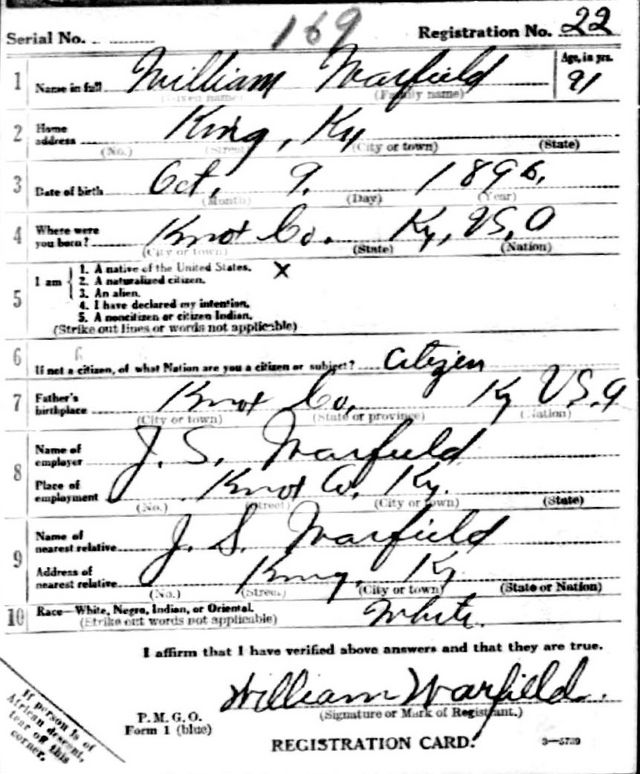 Serial No. 169 Registration No. 22
1 Name in full William Warfield Age, in yrs.
(Given name) (Family name) 21
2 Home address King, Ky
(No.) (Street) (City or town) (State)
3 Date of birth Oct. 9. 1896.
(Month) (Day) (Year)
4 Where were you born? Knox Co. Ky, U.S.A
(City or town) (State) (Nation)
5 I am
1. A native of the United States. X
2. A naturalized citizen.
3. An alien.
4. I have declared my intention.
5. A noncitizen or citizen Indian.
(Strike out lines or words not applicable)
6 If not a citizen, of what Nation are you a citizen or subject? Citizen
7 Father's birthplace Knox Co, Ky U.S.A
(City or town) (State or province) (Nation)
8 Name of employer J. S. Warfield
Place of employment Knox Co. Ky.
(No.) (Street) (City or town) (State)
9 Name of nearest relative J. S. Warfield
Address of nearest relative King, Ky
(No.) (Street) (City or town) (State or Nation)
10 Race—White, Negro, Indian, or Oriental. White.
(Strike out words not applicable)
I affirm that I have verified above answers and that they are true.
William Warfield.
(Signature or Mark of Registrant.)
P. M. G. O.
Form 1 (blue)
REGISTRATION CARD. 3—5739
If person is of
African descent,
tear off this
corner.